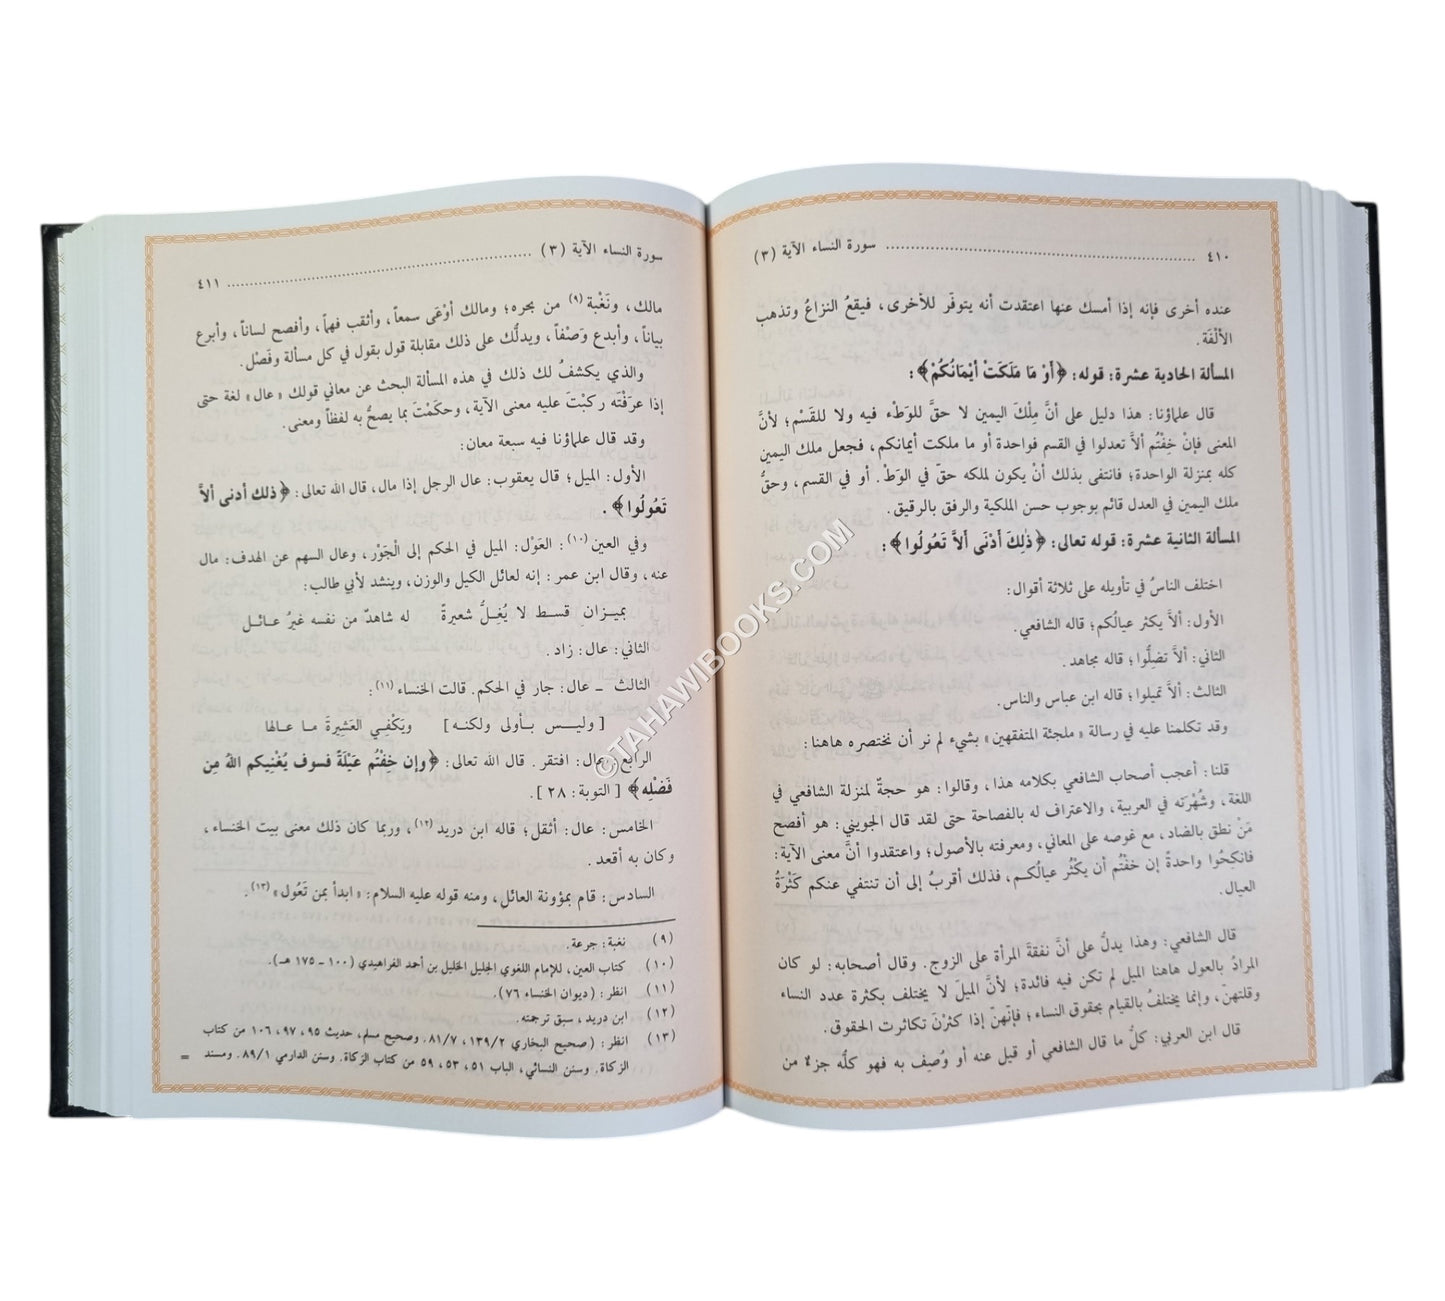 ٤١٠ ........................ سورة النساء الآية (٣)
عنده أخرى فإنه إذا أمسك عنها اعتقدت أنه يتوفّر للأخرى، فيقعُ النزاعُ وتذهب
الألْفَة.
المسألة الحادية عشرة: قوله: ﴿أَوْ مَا مَلَكَتْ أَيْمَانُكُمْ﴾:
قال علماؤنا: هذا دليل على أنَّ مِلْكَ اليمين لا حقَّ للوَطْء فيه ولا للقَسْم؛ لأنَّ
المعنى فإنْ خِفْتُم ألاَّ تعدلوا في القسم فواحدة أو ما ملكت أيمانكم، فجعل ملك اليمين
كله بمنزلة الواحدة؛ فانتفى بذلك أنْ يكون لملكه حقّ في الوَطْ. أو في القسم، وحقُّ
ملك اليمين في العدل قائم بوجوب حسن الملكية والرفق بالرقيق.
المسألة الثانية عشرة: قوله تعالى: ﴿ذٰلِكَ أَدْنَى أَلاَّ تَعُولُوا﴾:
اختلف الناسُ في تأويله على ثلاثة أقوال:
الأول: ألاَّ يكثر عيالُكم؛ قاله الشافعي.
الثاني: ألاَّ تضلُّوا؛ قاله مجاهد.
الثالث: ألاَّ تميلوا؛ قاله ابن عباس والناس.
وقد تكلمنا عليه في رسالة «ملجئة المتفقهين» بشيء لم نر أن نختصره هاهنا:
قلنا: أعجب أصحاب الشافعي بكلامه هذا، وقالوا: هو حجةٌ لمنزلة الشافعي في
اللغة، وشُهْرَته في العربية، والاعتراف له بالفصاحة حتى لقد قال الجويني: هو أفصح
مَنْ نطق بالضاد، مع غوصه على المعاني، ومعرفته بالأصول؛ واعتقدوا أنَّ معنى الآية:
فانكحُوا واحدةً إن خفْتُم أن يكْثُر عيالُكم، فذلك أقربُ إلى أن تنتفي عنكم كَثْرَةُ
العيال.
قال الشافعي: وهذا يدلُّ على أنَّ نفقةَ المرأة على الزوج. وقال أصحابه: لو كان
المرادُ بالعول هاهنا الميل لم تكن فيه فائدة؛ لأنَّ الميلَ لا يختلف بكثرة عدد النساء
وقلتهنّ، وإنما يختلفُ بالقيام بحقوق النساء؛ فإنّهنّ إذا كثرْنَ تكاثرت الحقوق.
قال ابن العربي: كلُّ ما قال الشافعي أو قيل عنه أو وُصِف به فهو كلُّه جزء من
سورة النساء الآية (٣) ........................ ٤١١
مالك، ونَغْبة (٩) من بحره؛ ومالك أوْعَى سمعاً، وأثقب فهماً، وأفصح لساناً، وأبرع
بياناً، وأبدع وَصْفاً، ويدلُّك على ذلك مقابلة قول بقول في كل مسألة وفَصْل.
والذي يكشفُ لك ذلك في هذه المسألة البحث عن معاني قولك «عال» لغة حتى
إذا عرَفْتَه ركبْتَ عليه معنى الآية، وحكَمْتَ بما يصحُّ به لفظاً ومعنى.
وقد قال علماؤنا فيه سبعة معان:
الأول: الميل؛ قال يعقوب: عال الرجل إذا مال، قال الله تعالى: ﴿ذلك أدنى ألاَّ
تَعُولُوا﴾.
وفي العين (١٠): العَوْل: الميل في الحكم إلى الْجَوْر، وعال السهم عن الهدف: مال
عنه، وقال ابن عمر: إنه لعائل الكيل والوزن، وينشد لأبي طالب:
بميـزان قسـط لا يُغِلُّ شعيرةً    له شاهدٌ من نفسه غيرُ عـائـل
الثاني: عال: زاد.
الثالث - عال: جار في الحكم. قالت الخنساء (١١):
[ وليـس بـأولى ولكنـه ]    ويَكْفِـي العَشِيرةَ مـا عـالها
الرابع: عال: افتقر. قال الله تعالى: ﴿وإن خِفْتُم عَيْلَةً فسوف يُغْنِيكم اللهُ مِن
فَضْلِه﴾ [ التوبة: ٢٨ ].
الخامس: عال: أثقل؛ قاله ابن دريد (١٢)، وربما كان ذلك معنى بيت الخنساء،
وكان به أقعد.
السادس: قام بمؤونة العائل، ومنه قوله عليه السلام: «ابدأ بمن تَعُول» (١٣).
(٩) نغبة: جرعة.
(١٠) كتاب العين، للإمام اللغوي الجليل الخليل بن أحمد الفراهيدي (١٠٠ - ١٧٥ هـ).
(١١) انظر: (ديوان الخنساء ٧٦).
(١٢) ابن دريد، سبق ترجمته.
(١٣) انظر: (صحيح البخاري ١٣٩/٢، ٨١/٧. وصحيح مسلم، حديث ٩٥، ٩٧، ١٠٦ من كتاب
الزكاة. وسنن النسائي، الباب ٥١، ٥٣، ٥٩ من كتاب الزكاة. وسنن الدارمي ٨٩/١. ومسند =
©TAHAWIBOOKS.COM